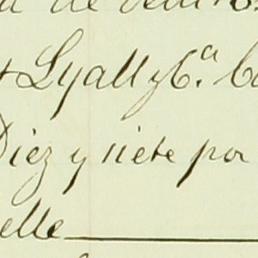 de
Lyall y Cª.
Diez y siete por
elle